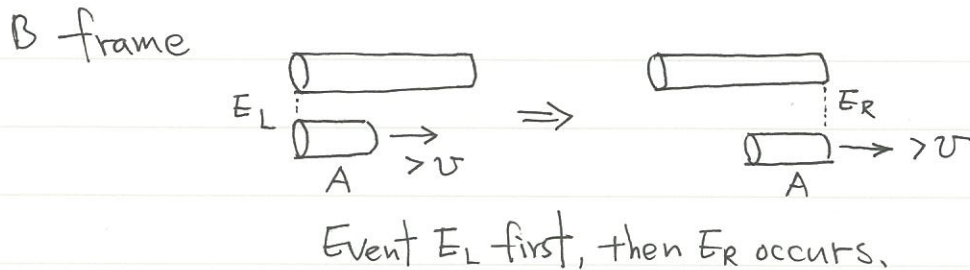 B frame
E_L
⇒
E_R
> v
> v
A
A
Event E_L first, then E_R occurs.